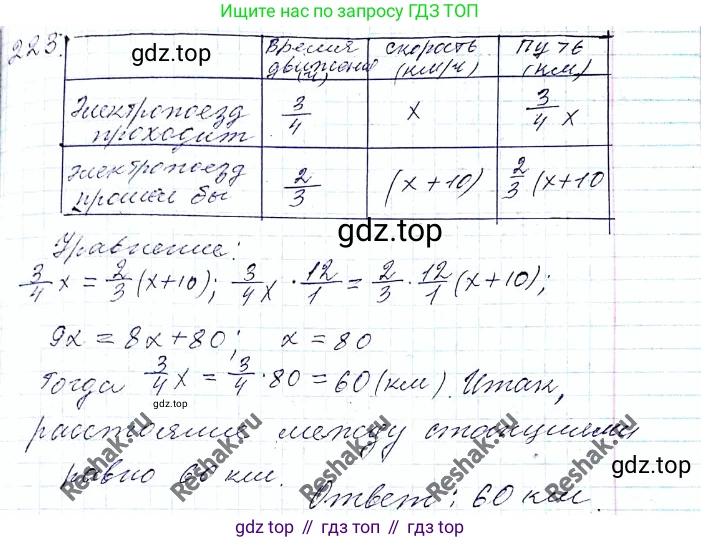 Ищите нас по запросу ГДЗ ТОП
223.
gdz.top
Время движения (ч)
Скорость (км/ч)
Путь (км)
Электропоезд проходит
3/4
x
3/4 x
Электропоезд прошёл бы
2/3
(x+10)
2/3 (x+10
Уравнение:
gdz.top
3/4 x = 2/3 (x+10); 3/4 x · 12/1 = 2/3 · 12/1 (x+10);
9x = 8x+80; x = 80
Тогда 3/4 x = 3/4 · 80 = 60 (км). Итак,
gdz.top
расстояние между станциями
равно 60 км.
gdz.top
Reshak.ru
Reshak.ru
Reshak.ru
Reshak.ru
Reshak.ru
Ответ: 60 км.
gdz.top // гдз топ // gdz.top // гдз топ // gdz.top